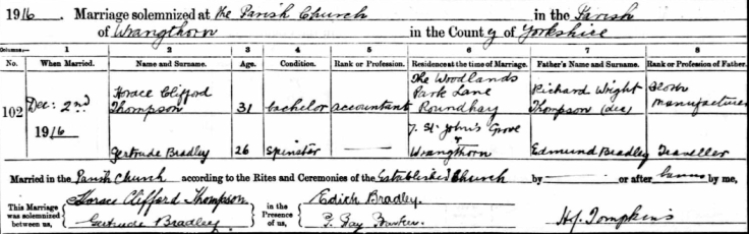 1916. Marriage solemnized at the Parish Church in the Parish
of Wrangthorn in the County of Yorkshire
Columns:— 1 2 3 4 5 6 7 8
No. When Married. Name and Surname. Age. Condition. Rank or Profession. Residence at the time of Marriage. Father's Name and Surname. Rank or Profession of Father.
102 Dec: 2nd 1916 Horace Clifford Thompson 31 bachelor accountant The Woodlands Park Lane Roundhay Richard Wright Thompson (dec) Cloth manufacturer
Gertrude Bradley 26 Spinster —— 7. St John's Grove Wrangthorn Edmund Bradley Traveller
Married in the Parish Church according to the Rites and Ceremonies of the Established Church by —— or after Banns by me,
This Marriage was solemnized between us, Horace Clifford Thompson Gertrude Bradley in the Presence of us, Edith Bradley. Hy. Tompkins